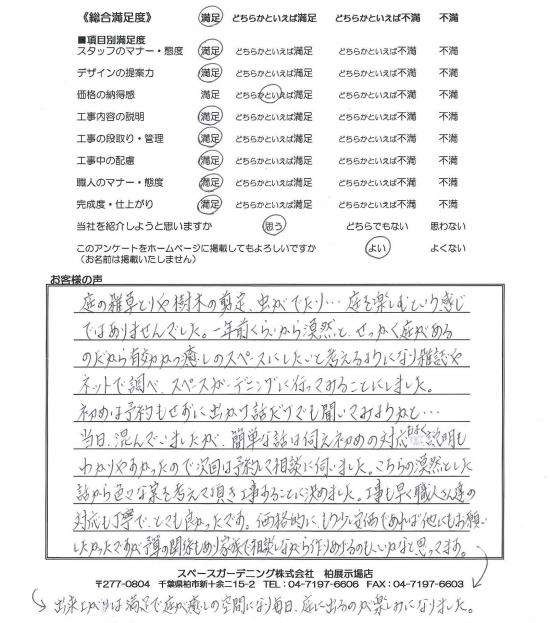 《総合満足度》 満足 どちらかといえば満足 どちらかといえば不満 不満
■項目別満足度
スタッフのマナー・態度 満足 どちらかといえば満足 どちらかといえば不満 不満
デザインの提案力 満足 どちらかといえば満足 どちらかといえば不満 不満
価格の納得感 満足 どちらかといえば満足 どちらかといえば不満 不満
工事内容の説明 満足 どちらかといえば満足 どちらかといえば不満 不満
工事の段取り・管理 満足 どちらかといえば満足 どちらかといえば不満 不満
工事中の配慮 満足 どちらかといえば満足 どちらかといえば不満 不満
職人のマナー・態度 満足 どちらかといえば満足 どちらかといえば不満 不満
完成度・仕上がり 満足 どちらかといえば満足 どちらかといえば不満 不満
当社を紹介しようと思いますか 思う どちらでもない 思わない
このアンケートをホームページに掲載してもよろしいですか よい よくない
(お名前は掲載いたしません)
お客様の声
庭の雑草とりや樹木の剪定、虫がでたり… 庭を楽しむという感じ
ではありませんでした。一年前くらいから漠然と、せっかく庭があるの
のだから有効かつ癒しのスペースにしたいと考えるようになり雑誌や
ネットで調べ、スペースガーデニングに行ってみることにしました。
初めは予約もせずに出かけ話だけでも聞いてみようかと…
当日、混んでいましたが、簡単な話は伺え初めの対応もよく説明も
わかりやすかったので次回は予約して相談に伺いました。こちらの漠然とした
話から色々な案を考えて頂き工事することに決めました。工事も早く職人さん達の
対応も丁寧で、とても良かったです。価格的に、もう少し安価であれば他にもお願い
したかったですが予算の関係もあり家族で相談しながら作りあげるのもいいかなと思ってます。
スペースガーデニング株式会社 柏展示場店
〒277-0804 千葉県柏市新十余二15-2 TEL:04-7197-6606 FAX:04-7197-6603
出来上がりは満足で庭が癒しの空間になり毎日、庭に出るのが楽しみになりました。